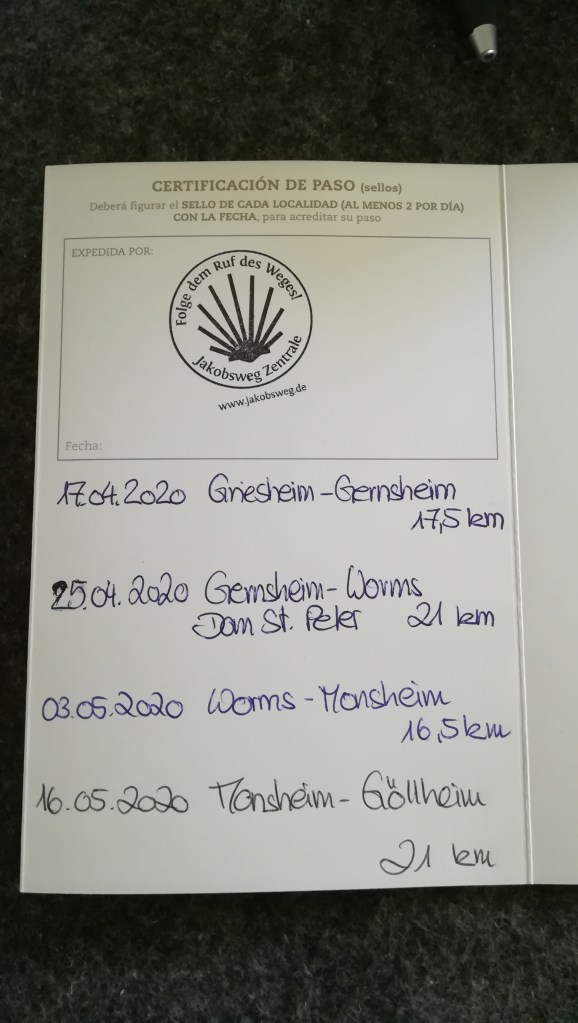 CERTIFICACIÓN DE PASO (sellos)
Deberá figurar el SELLO DE CADA LOCALIDAD (AL MENOS 2 POR DÍA)
CON LA FECHA, para acreditar su paso
EXPEDIDA POR:
Folge dem Ruf des Weges!
Jakobsweg Zentrale
www.jakobsweg.de
Fecha:
17.04.2020 Griesheim-Gernsheim
17,5 km
25.04.2020 Gernsheim-Worms
Dom St. Peter 21 km
03.05.2020 Worms-Monsheim
16,5 km
16.05.2020 Monsheim-Göllheim
21 km